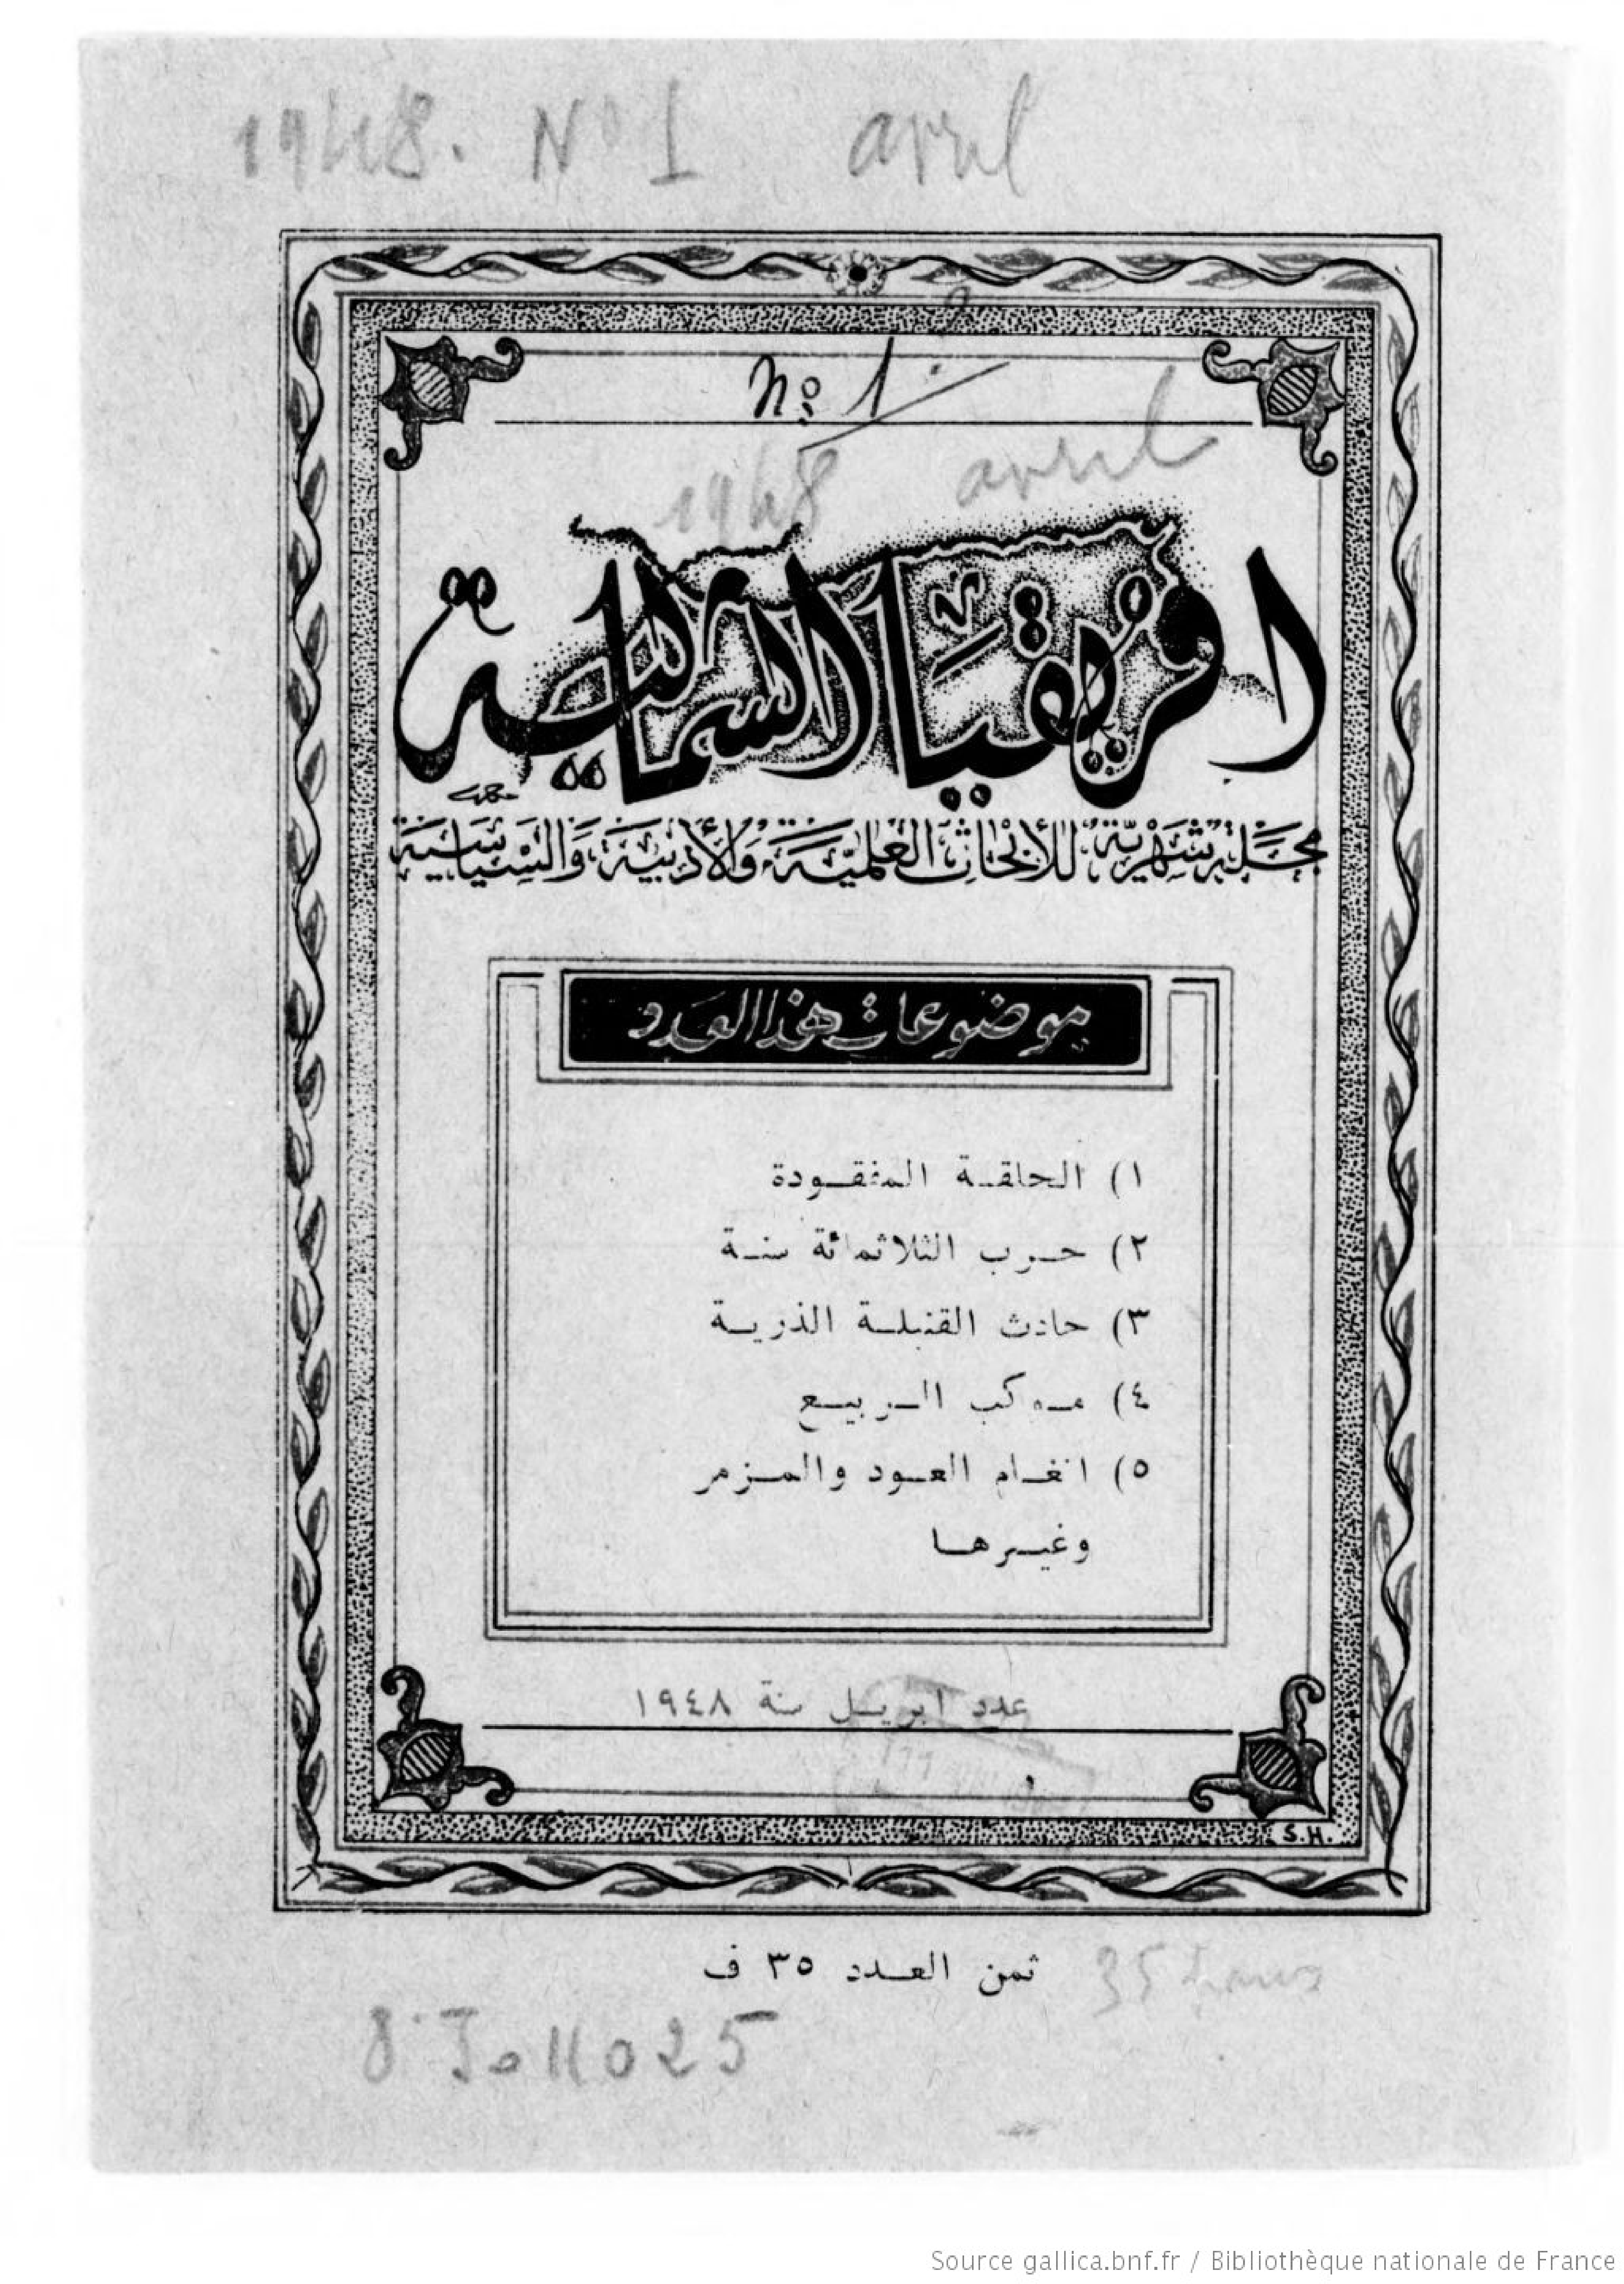 1948. N° 1 avril
N° 1
1948 avril
افريقيا الشمالية
مجلة شهرية للأبحاث العلمية والأدبية والسياسية
موضوعات هذا العدد
١) الحلقة المفقودة
٢) حرب الثلاثمائة سنة
٣) حادث القنبلة الذرية
٤) موكب الربيع
٥) انغام العود والمزمر
وغيرها
عدد ابريل سنة ١٩٤٨
S.H.
ثمن العدد ٣٥ ف
35 francs
8° Jo 11025
Source gallica.bnf.fr / Bibliothèque nationale de France